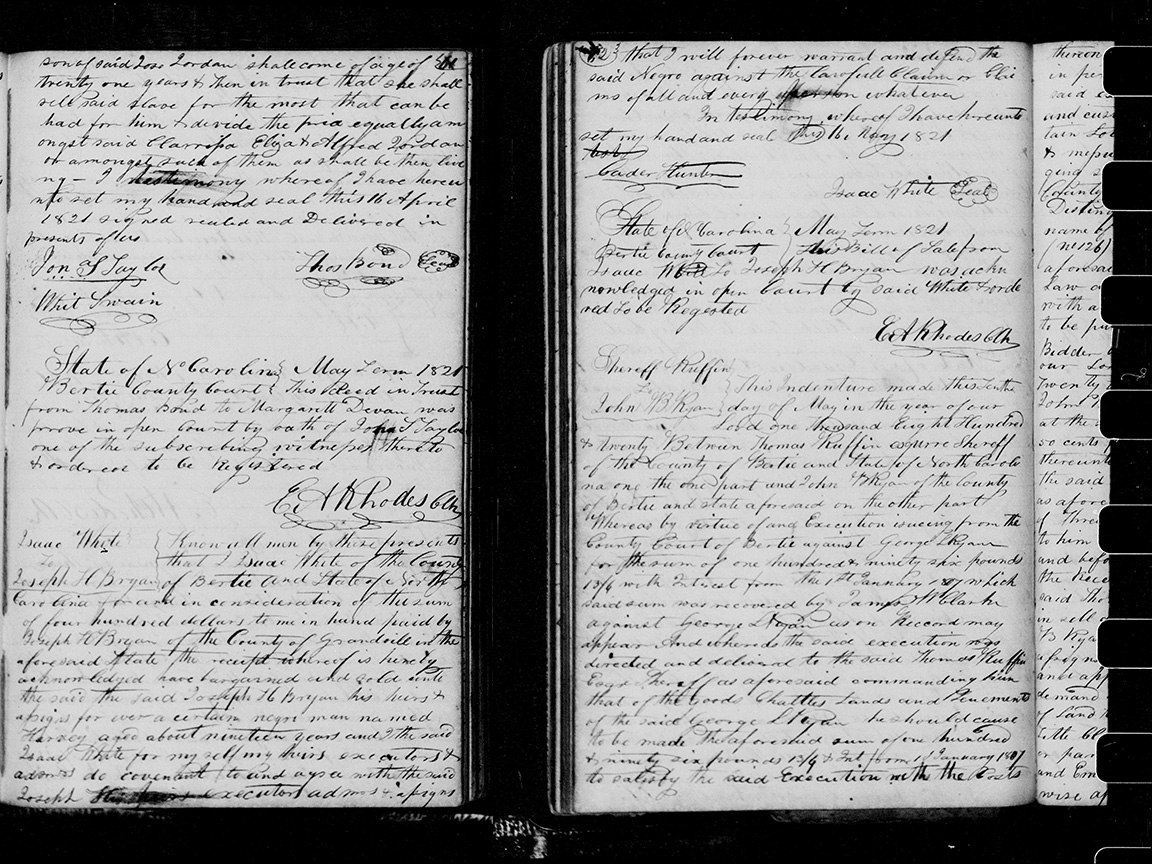 son of said Jos. Jordan shall come of age of
twenty one years & then in trust that she shall
sell said slave for the most that can be
had for him & divide the price equally am
ongst said Clarrissa Eliza & Alfred Jordan
or amongst such of them as shall be then livi
ng - I testimony whereof I have hereu
nto set my hand and seal this 16 April
1821 signed sealed and Delivered in
presents of us
Jon S Taylor Thos Bond Seal
Whit Swain
State of No Carolina } May Term 1821
Bertie County Court } This Deed in Trust
from Thomas Bond to Margarett Devan was
prove in open Court by oath of Jona S Taylor
one of the subscribing witnesses thereto
& ordered to be Registered
E A Rhodes Clk
Isaac White { Know all men by these presents
To { that I Isaac White of the County
Joseph H Bryan of Bertie and State of North
Carolina for and in consideration of the sum
of four hundred dollars to me in hand paid by
Joseph H Bryan of the County of Granville in the
aforesaid State the receipt whereof is hereby
acknowledged have bargained and sold unto
the said the said Joseph H Bryan his heirs &
assigns for ever a certain negro man named
Harvey aged about nineteen years and I the said
Isaac White for my self my heirs executors &
admrs do covenant to and agree with the said
Joseph his heirs executors admrs & assigns
that I will forever warrant and defend the
said Negro against the lawfull Claim or Clai
ms of all and every person whatever
In testimony whereof I have hereunto
set my hand and seal this 16 May 1821
Test
Cader Hunter
Isaac White Seal
State of N Carolina } May Term 1821
Bertie County Court } This Bill of Sale from
Isaac White to Joseph H Bryan was ackn
nowledged in open Court by said White & orde
red to be Regested
E A Rhodes Clk
Sheroff Ruffin
To } This Indenture made this tenth
John B Ryan } day of May in the year of our
Lord one thousand Eight Hundred
& twenty Betwien Thomas Ruffin esqure Sheroff
of the County of Bertie and State of North Caroli
na one the one part and John B Ryan of the County
of Bertie and state aforesaid on the other part
Whereas by vertue of and Execution issueing from the
County Court of Bertie against George L Ryan
for the sum of one hundred & ninety six pounds
13/6 with Interest from the 1st January 1807 which
said sum was recovered by James W Clark
against George L Ryan as on Record may
appear And whereas the said execution was
directed and deliverd to the said Thomas Ruffin
Esqr Sheroff as aforesaid commanding him
that of the Goods Chattles Lands and Tenements
of the said George L Ryan he should cause
to be made the aforesaid sum of one hundred
& ninety six pounds 13/6 & Int from 1 January 1807
to satisfy the said Execution with the Costs
thereon
in per
said
and cus
tain
& mess
ging
County
Distin
name of
(no 126)
aforesai
Law
with a
to be pu
Bidder
our Lor
Twenty
John
at the
50 cents
thereunto
the said
as afore
of three
to him
and befo
the Rece
said Tho
in sell
B Rya
assigns
and app
demand
of Land
Little
or par
and
wise